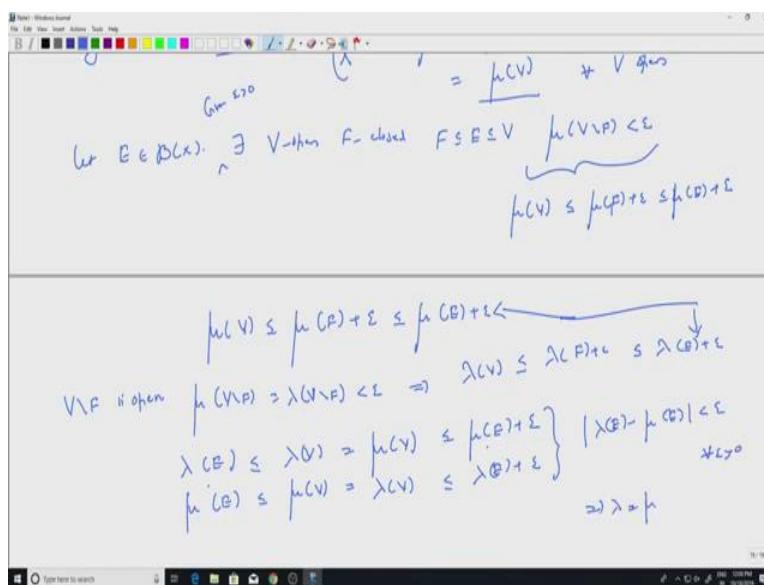 Note1 - Windows Journal
File Edit View Insert Actions Tools Help
= μ(V) ∀ V open
Given ε>0
Let E ∈ B(X). ∃ V-open F-closed F ⊆ E ⊆ V μ(V\F) < ε
μ(V) ≤ μ(F)+ε ≤ μ(E)+ε
μ(V) ≤ μ(F)+ε ≤ μ(E)+ε
V\F is open μ(V\F) = λ(V\F) < ε ⇒ λ(V) ≤ λ(F)+ε ≤ λ(E)+ε
λ(E) ≤ λ(V) = μ(V) ≤ μ(E)+ε } |λ(E)-μ(E)| < ε
μ(E) ≤ μ(V) = λ(V) ≤ λ(E)+ε ∀ε>0
⇒ λ = μ
Type here to search